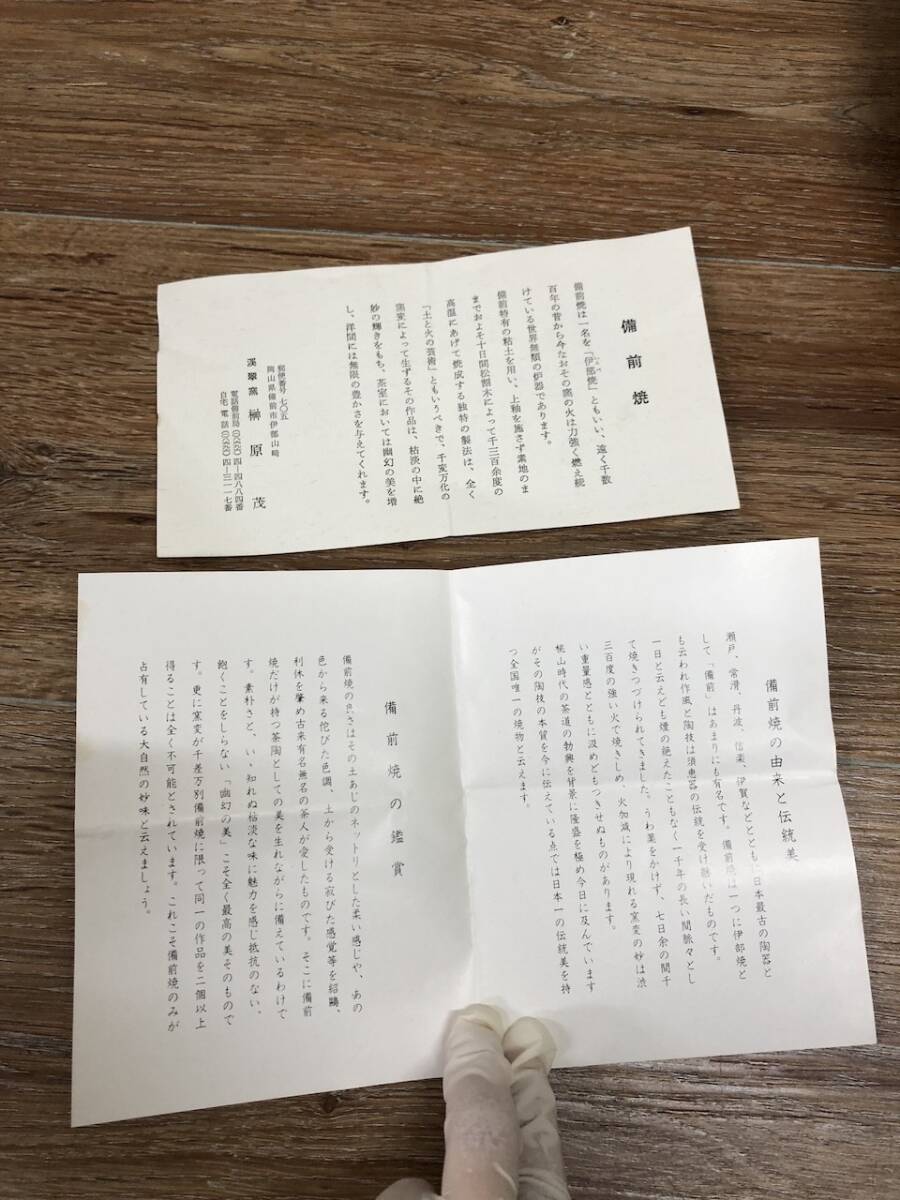 備前焼
備前焼は一名を「伊部焼」ともいい、遠く千数
百年の昔から今なおその窯の火は力強く燃え続
けている世界無類の炻器であります。
備前特有の粘土を用い、上釉を施さず素地のま
までおよそ十日間松割木によって千三百余度の
高温にあげて焼成する独特の製法は、全く
「土と火の芸術」ともいうべきで、千変万化の
窯変によって生ずるその作品は、枯淡の中に絶
妙の輝きをもち、茶室においては幽幻の美を増
し、洋間には無限の豊かさを与えてくれます。
郵便番号 七〇五
岡山県備前市伊部山崎
渓翠窯 榊原 茂
電話備前局(〇八六九六)四-四八八四番
自宅電話(〇八六九六)四-三一一七番
備前焼の由来と伝統美
瀬戸、常滑、丹波、信楽、伊賀などとともに日本最古の陶器と
して「備前」はあまりにも有名です。備前焼は一つに伊部焼と
も云われ作風と陶技は須恵器の伝統を受け継いだものです。
一日と云えども煙の絶えたこともなく一千年の長い間脈々とし
て焼きつづけられてきました。うわ薬をかけず、七日余の間千
三百度の強い火で焼きしめ、火加減により現れる窯変の妙は渋
い重量感とともに汲めどもつきせぬものがあります。
桃山時代の茶道の勃興を背景に隆盛を極め今日に及んでいます
がその陶技の本質を今に伝えている点では日本一の伝統美を持
つ全国唯一の焼物と云えます。
備前焼の鑑賞
備前焼の良さはその土あじのネットリとした柔い感じや、あの
色から来る侘びた色調、土から受ける寂びた感覚等を紹鷗、
利休を肇め古来有名無名の茶人が愛したものです。そこに備前
焼だけが持つ茶陶としての美を生れながらに備えているわけで
す。素朴さと、いい知れぬ枯淡な味に魅力を感じ抵抗のない、
飽くことをしらない「幽幻の美」こそ全く最高の美そのもので
す。更に窯変が千差万別備前焼に限って同一の作品を二個以上
得ることは全く不可能とされています。これこそ備前焼のみが
占有している大自然の妙味と云えましょう。